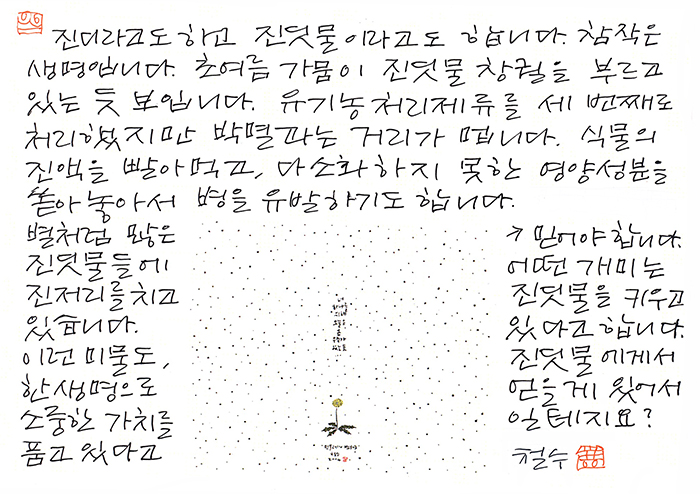 진더라고도하고 진딧물이라고도 합니다. 참작은
생명입니다. 초여름 가뭄이 진딧물 창궐을 부르고
있는 듯 보입니다. 유기농처리제류를 세 번째로
처리했지만 박멸과는 거리가 멉니다. 식물의
진액을 빨아먹고, 다소화하지 못한 영양성분을
쏟아놓아서 병을 유발하기도 합니다.
별처럼 많은
진딧물들에
진저리를치고
있습니다.
이런 미물도,
한생명으로
소중한 가치를
품고 있다고
→ 믿어야합니다.
어떤 개미는
진딧물을 키우고
있다고합니다.
진딧물에게서
얻을게 있어서
일테지요?
철수